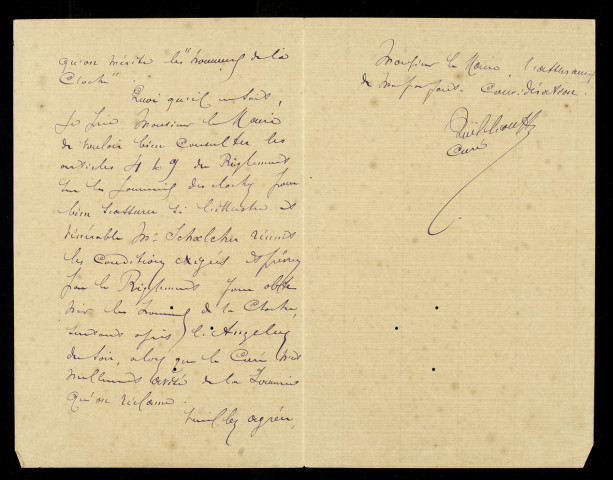 qu'on mérite les "honneurs de la
Cloche".
Quoi qu'il en soit,
Je prie Monsieur le Maire
de vouloir bien consulter les
articles 4 & 9 du Règlement
sur les sonneries des cloches pour
bien s'assurer si l'illustre et
vénérable Mr. Schœlcher réunit
les conditions exigées et prévues
par le Règlement pour obte
nir les honneurs de la Cloche,
surtout après l'Angelus
du soir, alors que le Curé n'est
nullement avisé de la Sonnerie
qu'on réclame.
Veuillez agréer,
Monsieur le Maire, l'assurance
de ma parfaite Considération.
Curé